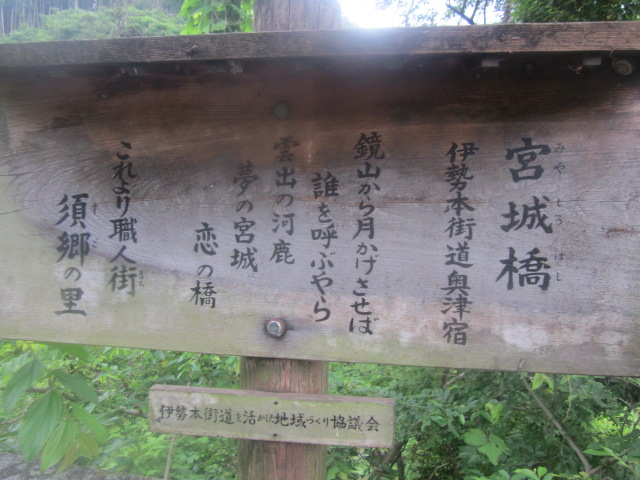 宮城橋
みやしろはし
伊勢本街道奥津宿
鏡山から月かげさせば
誰を呼ぶやら
雲出の河鹿
夢の宮城
恋の橋
これより職人街
須郷の里
伊勢本街道を活かした地域づくり協議会